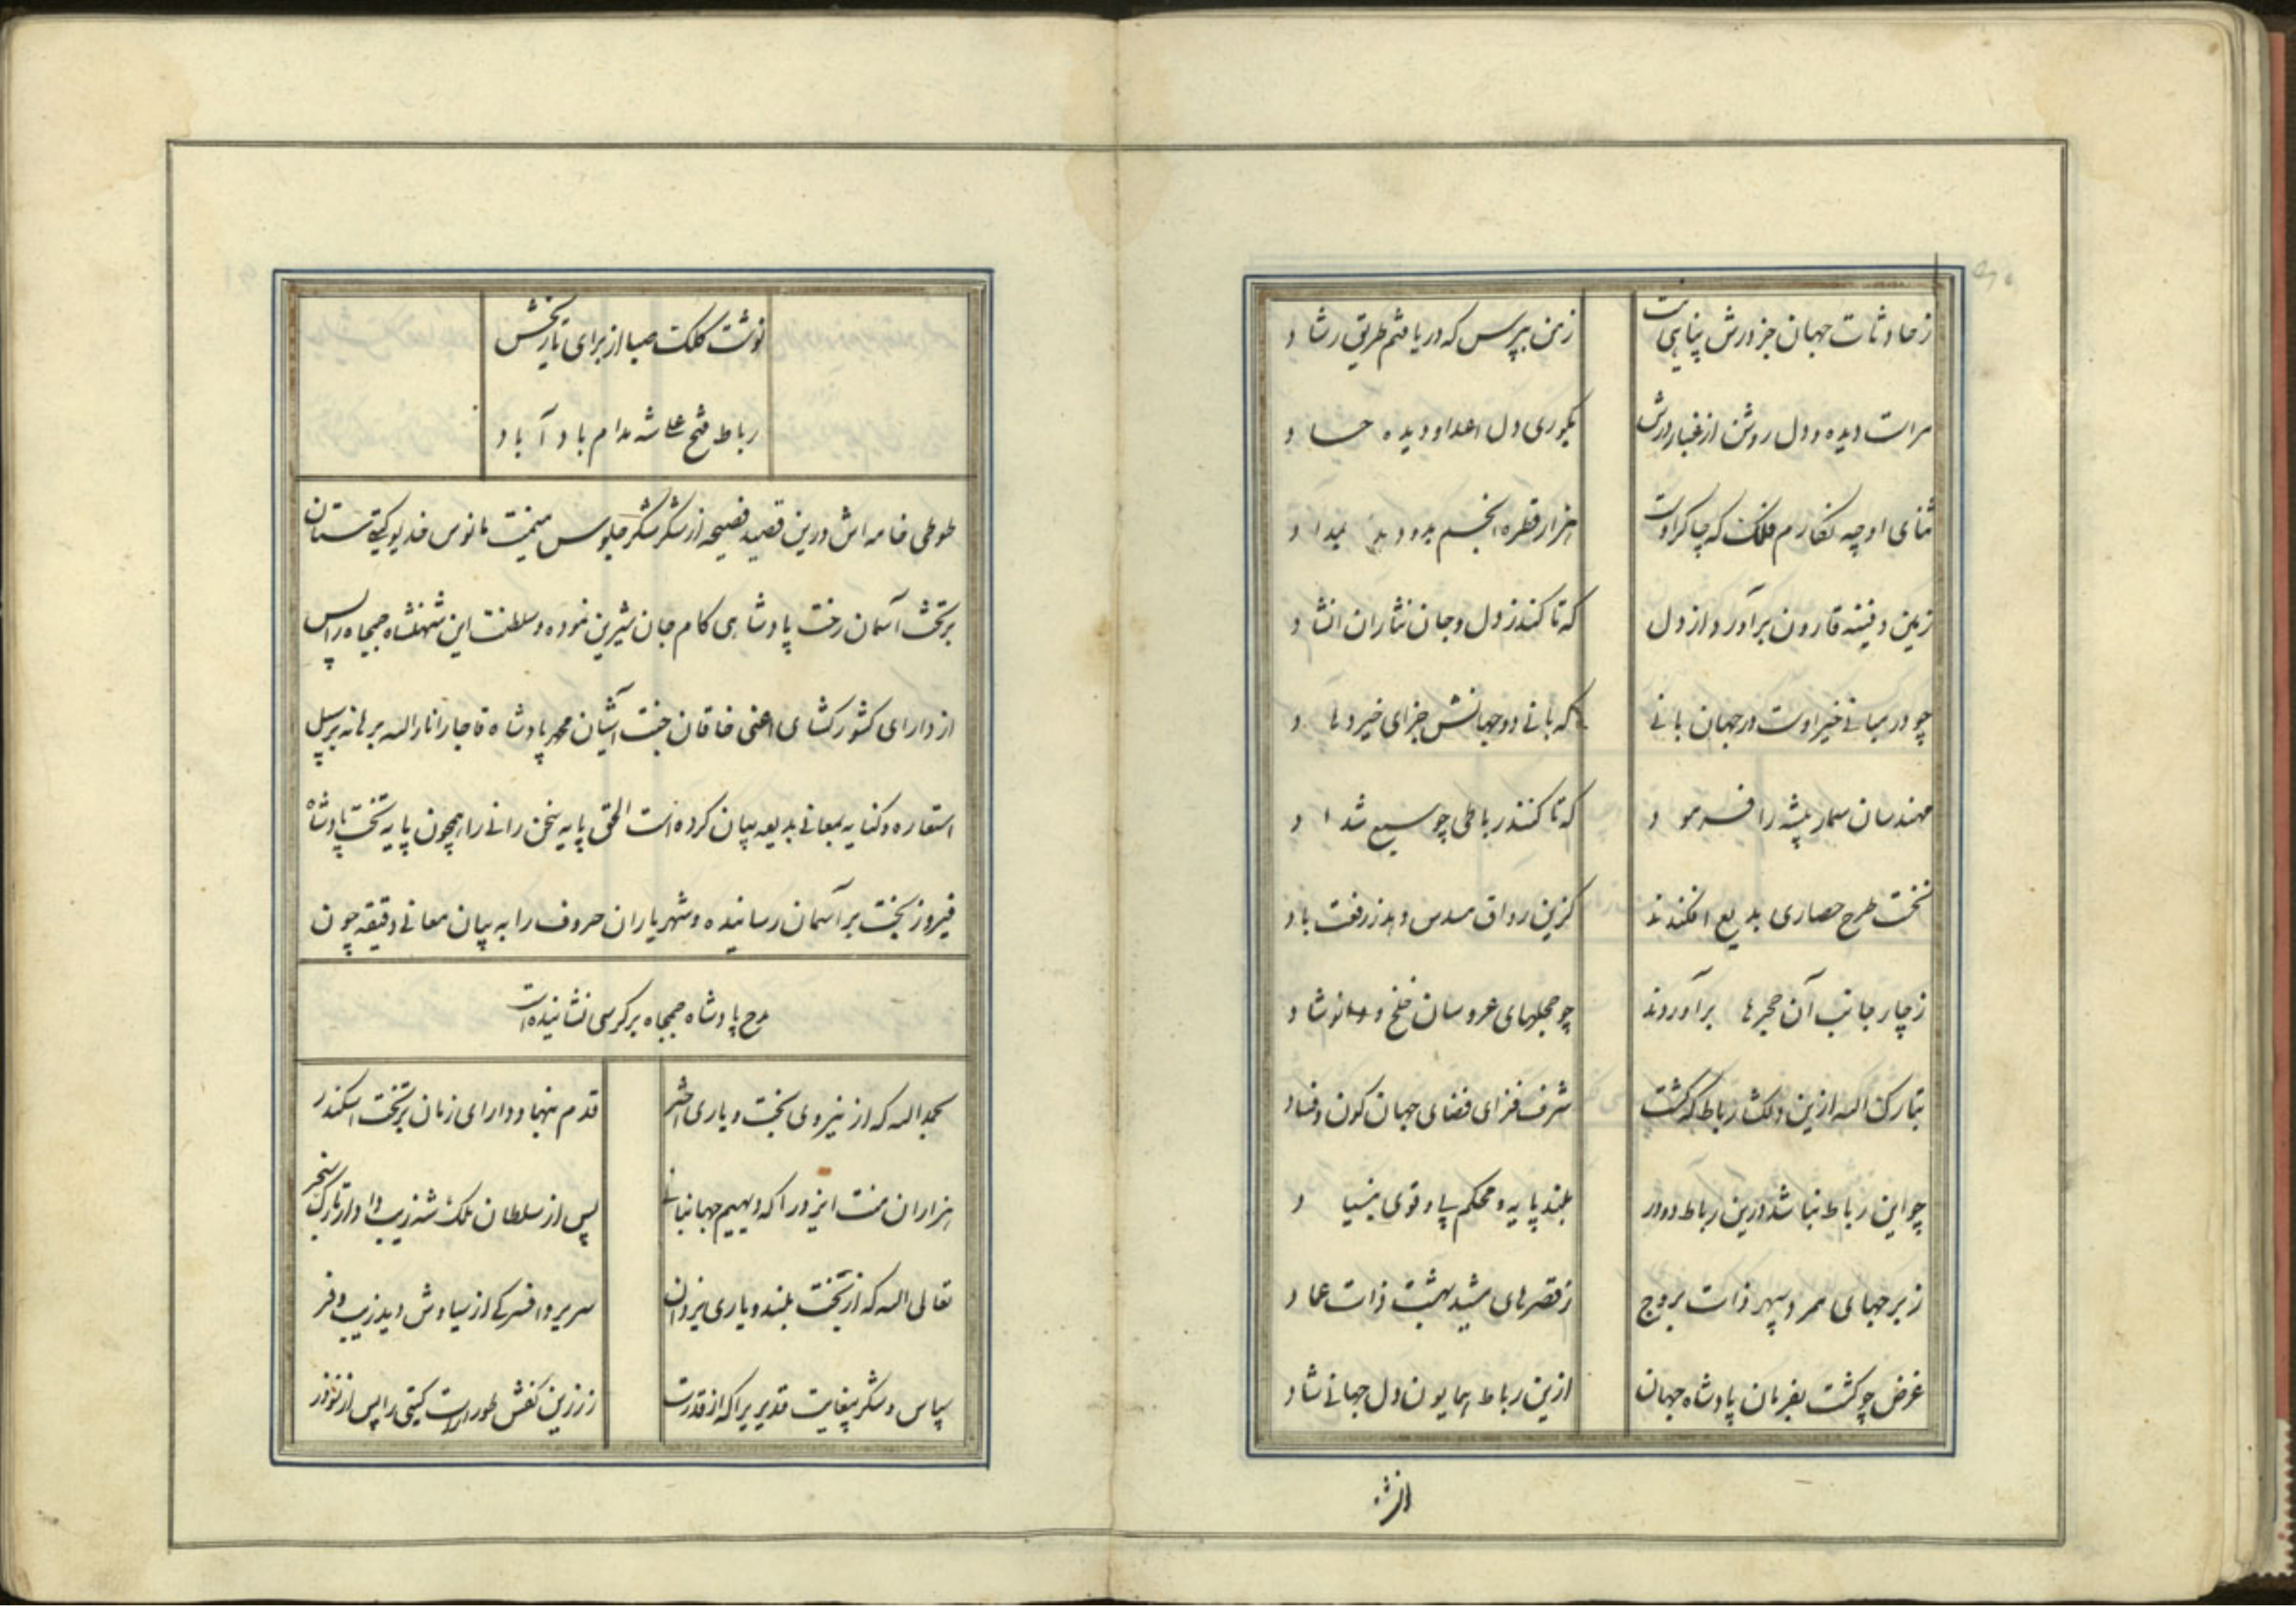 ز حادثات جهان جز درش پناهی نیست
ز من بپرس که دریافتم طریق رشاد
مراست دیده و دل روشن از غبار درش
بکوری دل اعدا و دیده حساد
ثنای او چه نگارم فلک که چاکر اوست
هزار قطره انجم
زمین دفینه قارون برآورد از دل
که تا کند ز دل و جان نثار ان انشاد
چو در مبانی خیر اوست در جهان بانی
که بانی دو جهانش جزای خیر دهاد
مهندسان سمار پیشه را فرمود
که تا کنند رباطی چو سبع شداد
نخست طرح حصاری بدیع افکندند
کزین رواق مسدس و بدز رفعت باد
ز چار جانب آن حجرها برآوردند
چو حجلهای عروسان خلخ و نوشاد
تبارک الله ازین دلگشا رباط که گشت
شرف فزای فضای جهان کون و فساد
چو این رباط نباشد درین رباط دودر
بلند پایه و محکم پی و قوی بنیاد
ز برجهای سپهر ذات بروج
ز قصرهای مشید بهشت ذات عماد
غرض چو گشت بفرمان پادشاه جهان
ازین رباط همایون دل جهانی شاد
نوشت کلک صبا از برای تاریخش
رباط فتح علی شه مدام باد آباد
طوطی خامه اش درین قصیده فصیحه از شکر شکر جلوس میمنت مانوس خدیو گیتی ستان
بر تخت آسمان رخت پادشاهی کام جان شیرین نموده و سلطنت این شهنشاه جمجاه را پس
از دارای کشور کشای اعنی خاقان جنت آشیان محمد پادشاه قاجار انار الله برهانه بر سبیل
استعاره و کنایه بمعانی بدیعه بیان کرده است الحق پایه سخن رانی را همچون پایه تخت پادشاه
فیروز بخت بر آسمان رسانیده و شهریاران حروف را به بیان معانی دقیقه چون
مدح پادشاه جمجاه بر کرسی نشانیده است
بحمد الله که از نیروی بخت و یاری اختر
قدم بنهاد دارای زمان بر تخت اسکندر
هزاران منت ایزد را که دیهیم جهانبانی
پس از سلطان ملک شه زیب داد از تارک سنجر
تعالی الله که از تخت بلند و یاری یزدان
سریر و افسر کی از سیاوش دید زیب و فر
سپاس و شکر بیغایت قدیر را که از قدرت
ز زرین کفش طور است گیتی را پس از نوذر